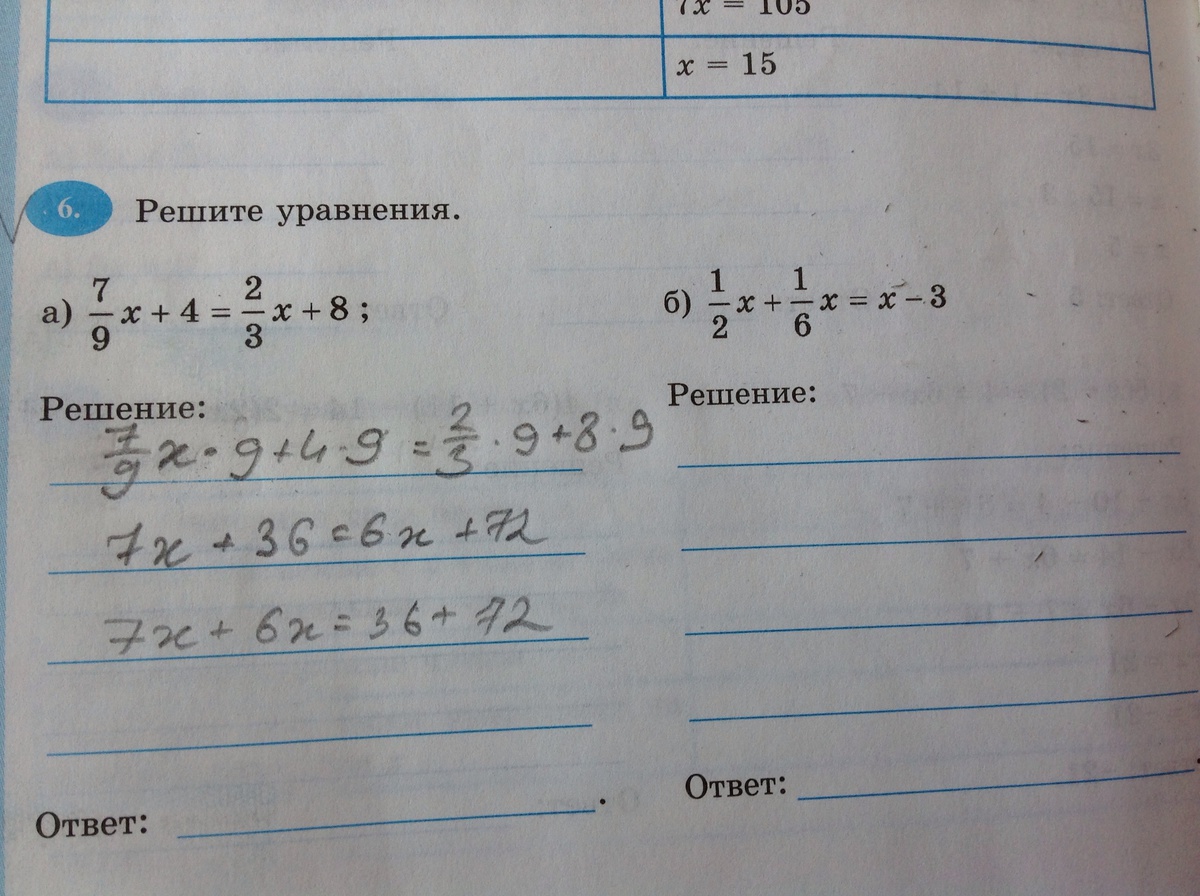 7x = 105
x = 15
6. Решите уравнения.
а) 7/9 x + 4 = 2/3 x + 8 ;
Решение:
7/9 x · 9 + 4 · 9 = 2/3 · 9 + 8 · 9
7x + 36 = 6x + 72
7x + 6x = 36 + 72
Ответ: .
б) 1/2 x + 1/6 x = x – 3
Решение:
Ответ: .